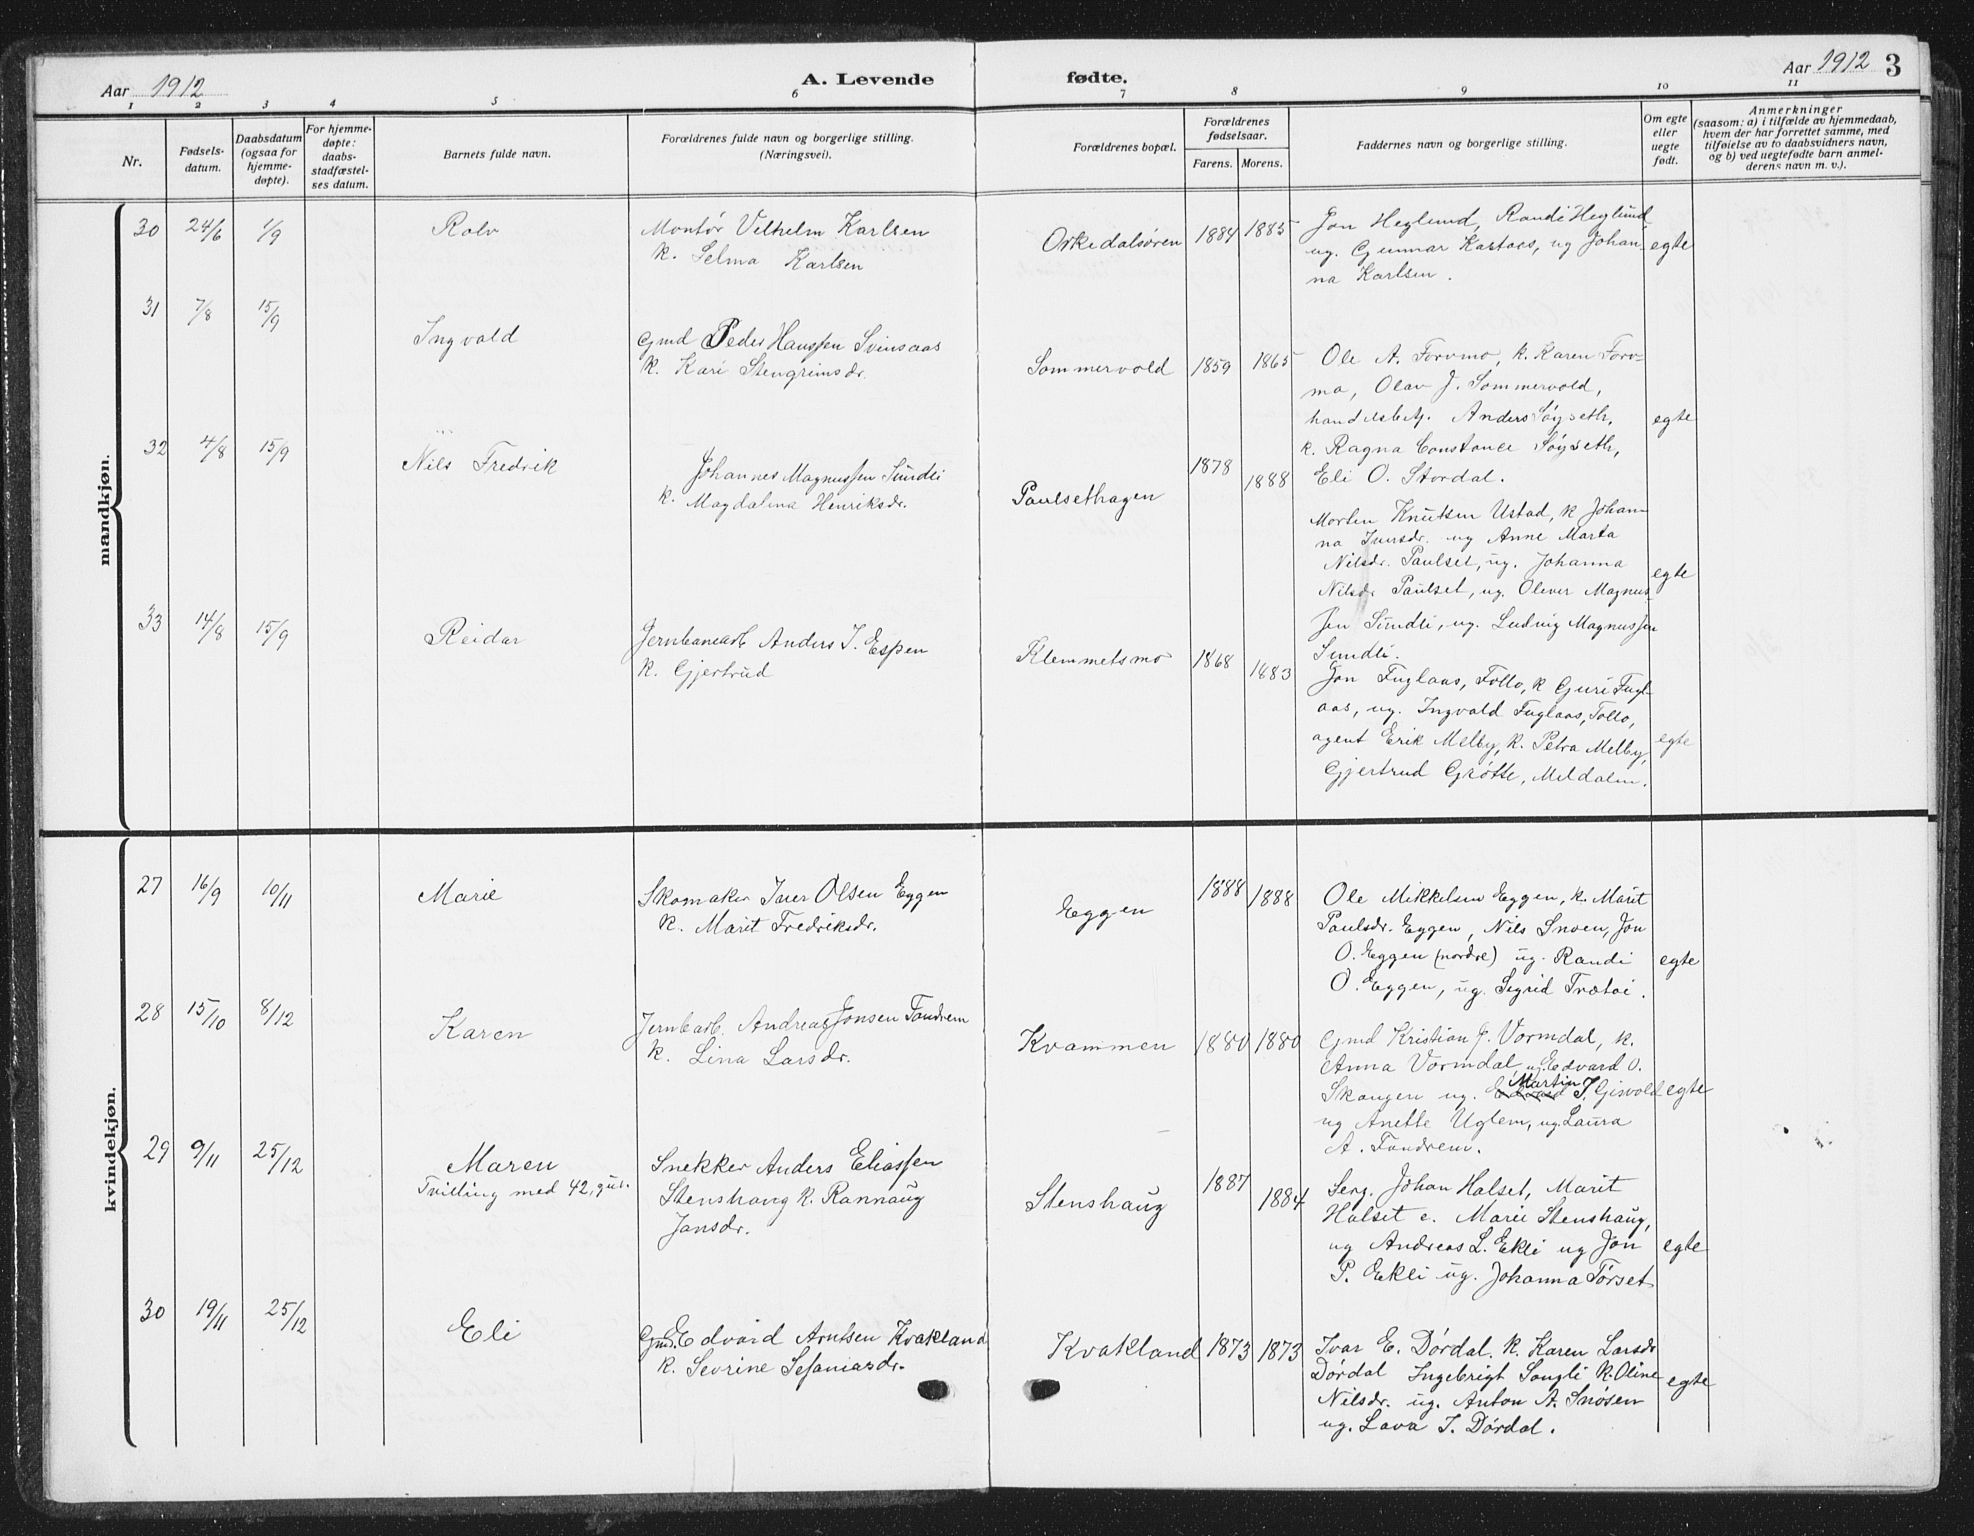 Aar 1912
A. Levende fødte.
Aar 1912
3
1 2 3 4 5 6 7 8 9 10 11
Nr.
Fødsels-
datum.
Daabsdatum
(ogsaa for
hjemme-
døpte).
For hjemme-
døpte:
daabs-
stadfæstel-
ses datum.
Barnets fulde navn.
Forældrenes fulde navn og borgerlige stilling.
(Næringsvei).
Forældrenes bopæl.
Forældrenes
fødselsaar.
Farens. Morens.
Faddernes navn og borgerlige stilling.
Om egte
eller
uegte
født.
Anmerkninger
(saasom: a) i tilfælde av hjemmedaab,
hvem der har forrettet samme, med
tilføielse av to daabsvidners navn,
og b) ved uegtefødte barn anmel-
derens navn m. v.).
mandkjøn.
30 24/6 1/9
Rolv
Montør Vilhelm Karlsen
k. Selma Karlsen
Orkedalsøren 1884 1885
Jon Heglund, Randi Heglund,
ug. Gunnar Kastaas, ug Johan-
na Karlsen.
egte
31 7/8 15/9
Ingvald
Gmd Peder Hanssen Svinsaas
k. Kari Stengrimsdr.
Sommervold 1859 1865
Ole A. Forvmo, k. Karen Forv-
mo, Olav J. Sommervold,
handelsbetj. Anders Søyseth,
k. Ragna Constance Søyseth,
Eli O. Stordal.
egte
32 4/8 15/9
Nils Fredrik
Johannes Magnussen Sundli
k. Magdalena Henriksdr.
Paulsethagen 1878 1888
Morten Knutsen Ustad, k Johan-
na Iversdr. ug Anne Marta
Nilsdr. Paulset, ug. Johanna
Nilsdr Paulset, ug. Oliver Magnus-
sen Sundli, ug. Ludvig Magnussen
Sundli.
egte
33 14/8 15/9
Reidar
Jernbanearb Anders I. Espen
k. Gjertrud
Klemmetsmo 1868 1883
Jon Fuglaas, Follo, k Guri Fugl-
aas, ug. Ingvald Fuglaas, Follo,
agent Erik Melby, k. Petra Melby,
Gjertrud Grøtte, Meldalen.
egte
kvindekjøn.
27 16/9 10/11
Marie
Skomaker Iver Olsen Eggen
k. Marit Fredriksdr.
Eggen 1888 1888
Ole Mikkelsen Eggen, k. Marit
Paulsdr. Eggen, Nils Snoen, Jon
O. Eggen (nordre) ug. Randi
O. Eggen, ug. Sigrid Trætøi.
egte
28 15/10 8/12
Karen
Jernbarb. Andreas Jonsen Fandrem
k. Lina Larsdr.
Kvammen 1880 1880
Gmd Kristian J. Vormdal, k.
Anna Vormdal ug. Edvard O.
Skaugen ug. Edvard Martin I. Gisvold
ug Anette Uglem, ug. Laura
A. Fandrem.
egte
29 9/11 25/12
Maren
Tvilling med 42, gut.
Snekker Anders Eliassen
Stenshaug k. Rannaug
Jonsdr.
Stenshaug 1887 1884
Serg. Johan Halset, Marit
Halset e. Marie Stenshaug,
ug Andreas L. Ekli ug Jon
P. Ekli ug. Johanna Tørset
egte
30 19/11 25/12
Eli
Gmd. Edvard Arntsen Kvakland
k. Sevrine Sefaniasdr.
Kvakland 1873 1873
Ivar E. Dørdal. k. Karen Larsdr
Dørdal Ingebrigt Songli k. Oline
Nilsdr. ug. Anton A. Snøsen
ug. Lava I. Dørdal.
egte